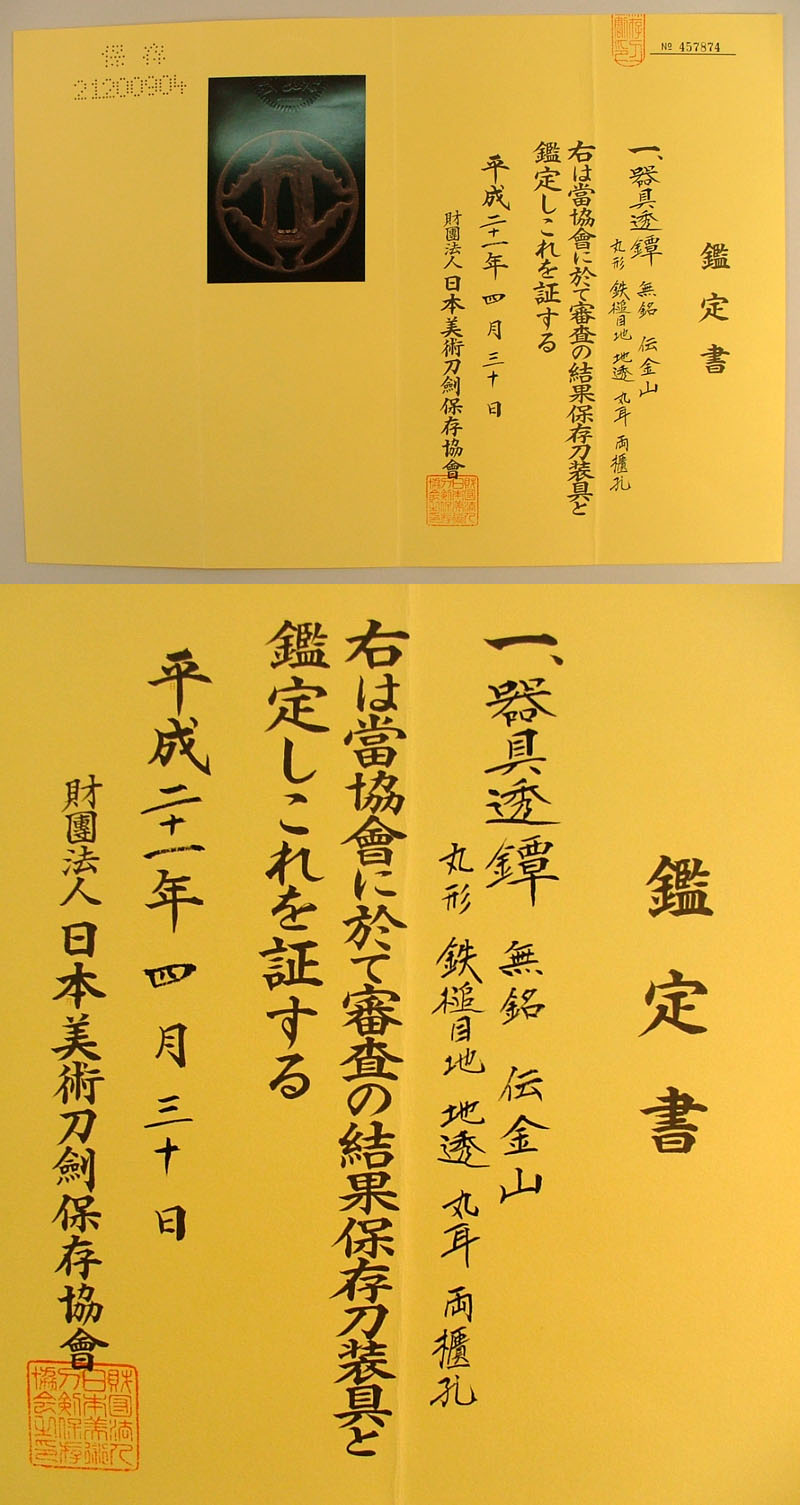 保存
21200904
№ 457874
鑑定書
一、器具透鐔 無銘 伝金山
丸形 鉄槌目地 地透 丸耳 両櫃孔
右は當協會に於て審査の結果保存刀装具と
鑑定しこれを証する
平成二十一年四月三十日
財團法人日本美術刀劍保存協會
鑑定書
一、器具透鐔 無銘 伝金山
丸形 鉄槌目地 地透 丸耳 両櫃孔
右は當協會に於て審査の結果保存刀装具と
鑑定しこれを証する
平成二十一年四月三十日
財團法人日本美術刀劍保存協會